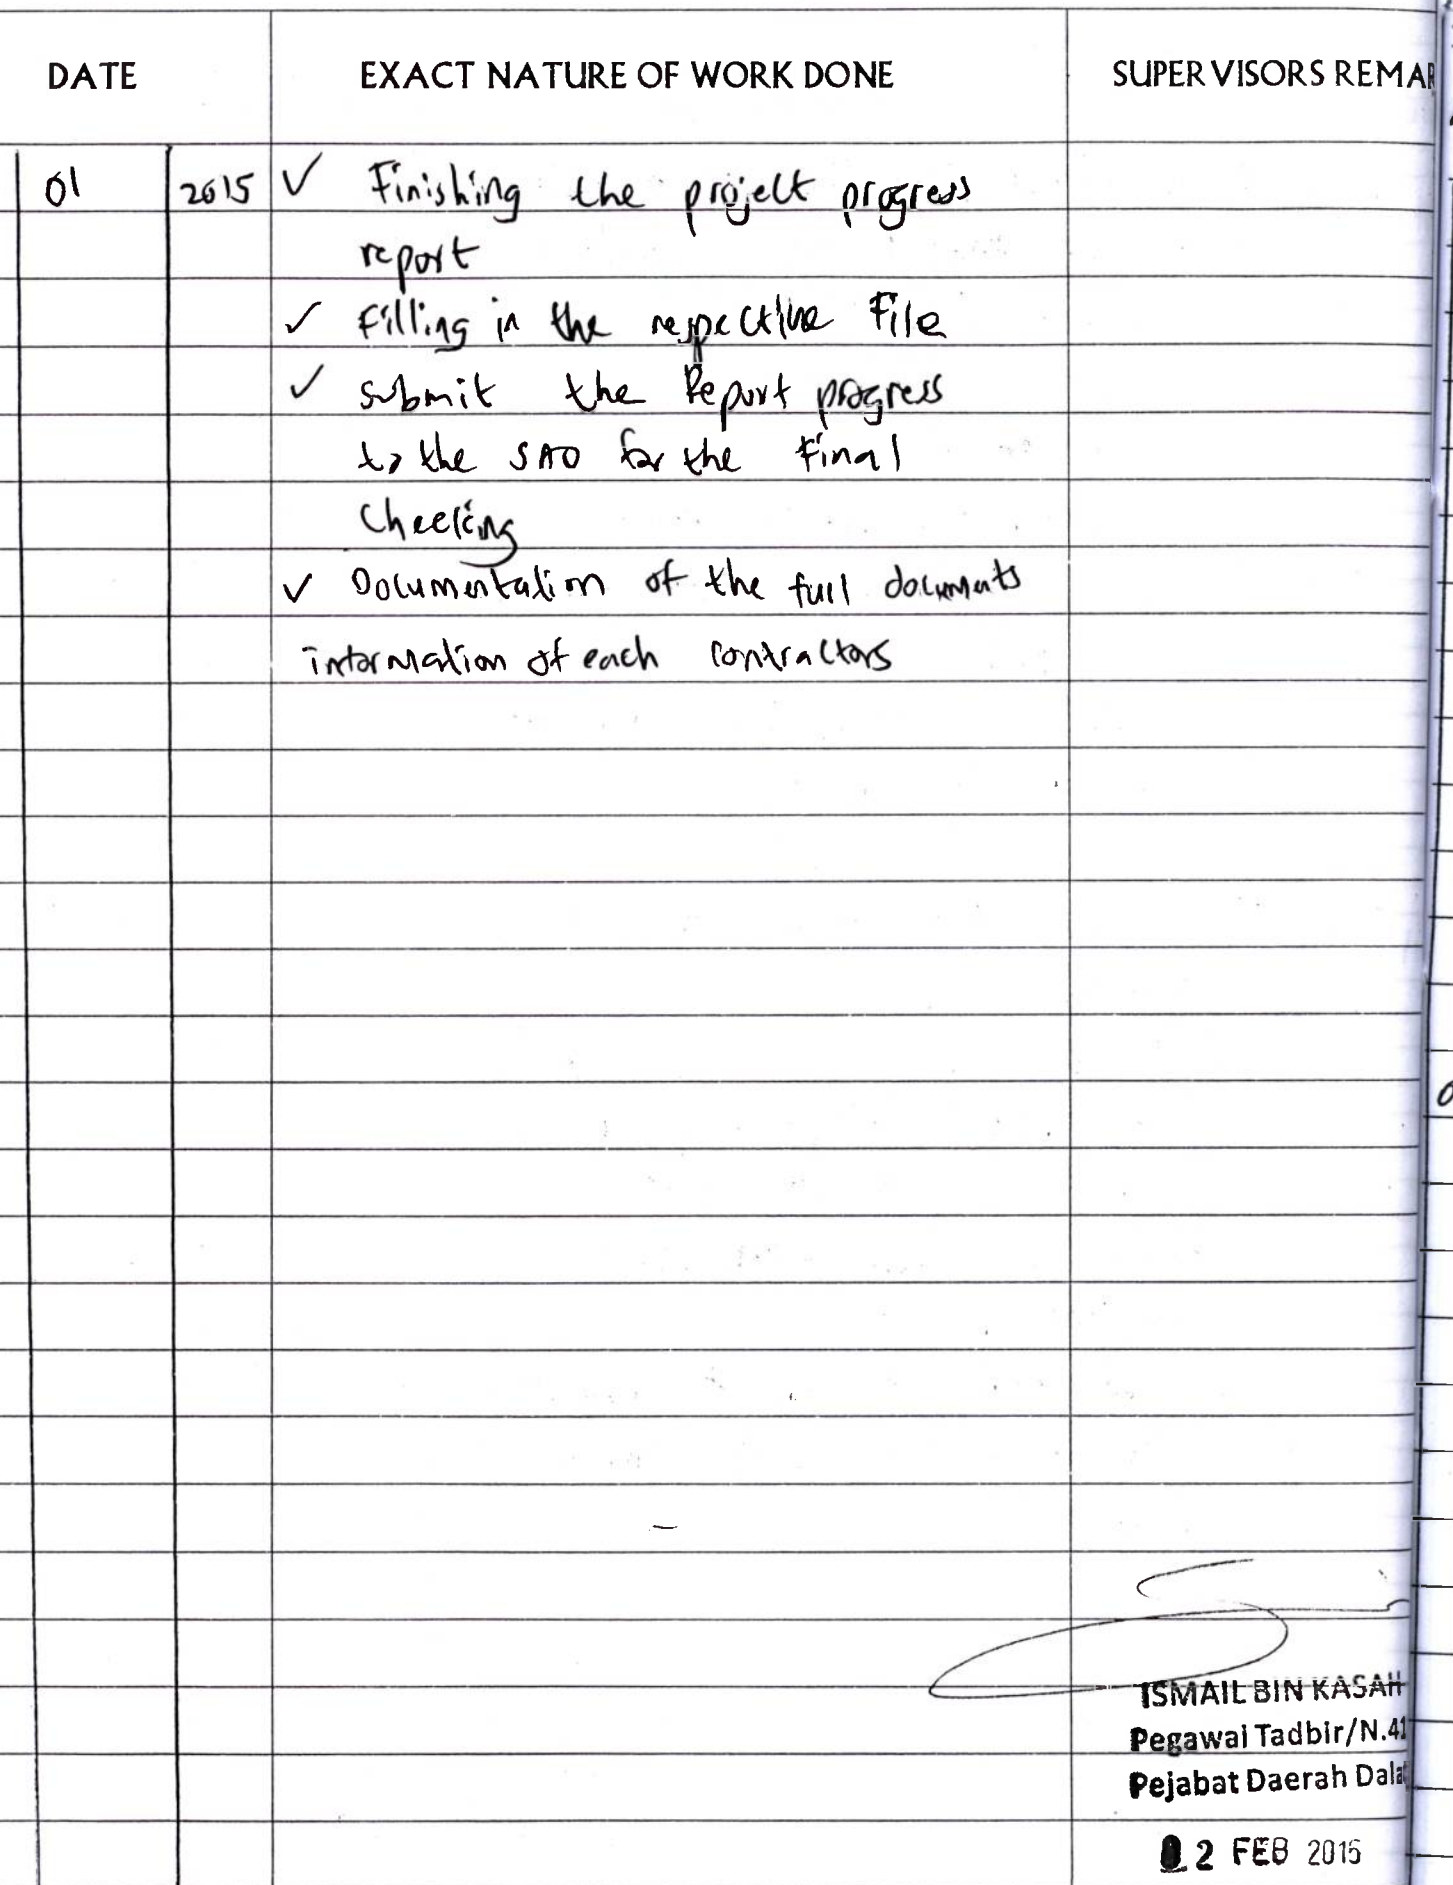 DATE EXACT NATURE OF WORK DONE SUPERVISORS REMAR
01 2015 ✓ Finishing the project progress
report
✓ Filling in the respective File
✓ submit the Report progress
to the SAO for the Final
Checking
✓ Documentation of the full documents
information of each contractors
ISMAIL BIN KASAH
Pegawai Tadbir/N.41
Pejabat Daerah Dala
02 FEB 2015